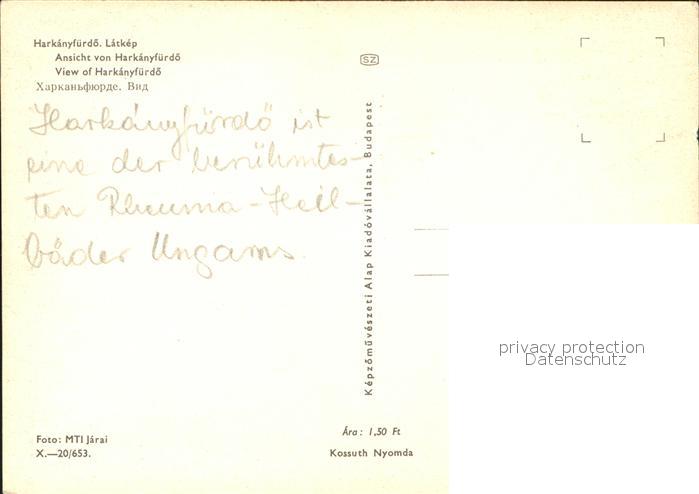 Harkányfürdő. Látkép
Ansicht von Harkányfürdő
View of Harkányfürdő
Харканьфюрде. Вид
Harkányfürdő ist
eine der berühmtes-
ten Rheuma-Heil-
bäder Ungarns.
Foto: MTI Járai
X.—20/653.
SZ
Képzőművészeti Alap Kiadóvállalata, Budapest
Ára: 1,50 Ft
Kossuth Nyomda
privacy protection
Datenschutz